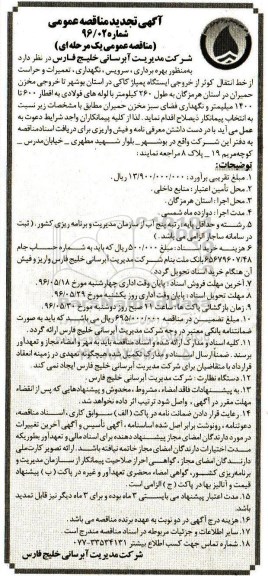 آگهی تجدید مناقصه عمومی
شماره ۹۶/۰۲
(مناقصه عمومی یک مرحله ای)
شرکت مدیریت آبرسانی خلیج فارس در نظر دارد
به منظور بهره برداری، سرویس، نگهداری، تعمیرات و حراست
از خط انتقال کوثر از خروجی ایستگاه پمپاژ کاکی در استان بوشهر تا خروجی مخزن
حمیران در استان هرمزگان به طول ۲۶۰ کیلومتر با لوله های فولادی به اقطار ۶۰۰ تا
۱۴۰۰ میلیمتر و نگهداری فضای سبز مخزن حمیران مطابق با مشخصات زیر نسبت
به انتخاب پیمانکار ذیصلاح اقدام نماید. لذا از کلیه پیمانکاران واجد شرایط دعوت به
عمل می آید با در دست داشتن معرفی نامه و فیش واریزی برای دریافت اسناد مناقصه
به دفتر این شرکت واقع در بوشهر _ بلوار شهید مطهری _ خیابان مدرس _
کوچه مریم ۱۹ _ پلاک ۸ مراجعه نمایند:
توضیحات:
۱. مبلغ تقریبی برآورد: ۱۳/۹۰۰/۰۰۰/۰۰۰ ریال.
۲. محل تأمین اعتبار: منابع داخلی.
۳. محل اجرا: استان هرمزگان.
۴. مدت اجرا: دوازده ماه شمسی.
۵. رشته و حداقل پایه: رتبه پنج آب از سازمان مدیریت و برنامه ریزی کشور. (ثبت
در سامانه ساجار الزامی می باشد.)
۶. هزینه خرید اسناد: مبلغ ۵۰۰/۰۰۰ ریال که باید به شماره حساب جام
۶۵۶۷۹۶۰۷/۴۸ بانک ملت بنام شرکت مدیریت آبرسانی خلیج فارس واریز و فیش
آن هنگام خرید اسناد تحویل گردد.
۷. آخرین مهلت فروش اسناد: پایان وقت اداری چهارشنبه مورخ ۹۶/۰۵/۱۸
۸. مهلت تحویل اسناد: پایان وقت اداری روز یکشنبه مورخ ۹۶/۰۵/۲۹
۹. زمان بازگشائی پاکت ها: ساعت ۱۰ صبح روز دوشنبه مورخ ۹۶/۰۵/۳۰
۱۰. مبلغ تضمین در مناقصه ۶۹۵/۰۰۰/۰۰۰ ریال می باشد که باید به صورت
ضمانتنامه بانکی معتبر در وجه شرکت مدیریت آبرسانی خلیج فارس ارائه گردد.
۱۱. کلیه اسناد و مدارک ارائه شده و اسناد مناقصه باید به مهر و امضاء مجاز و تعهدآور
برسند. ضمناً ارسال اسناد و مدارک تکمیل شده هیچگونه تعهدی در زمینه انعقاد
قرارداد با متقاضیان برای شرکت مدیریت آبرسانی خلیج فارس ایجاد نمی کند.
۱۲. دستگاه نظارت: شرکت مدیریت آبرسانی خلیج فارس.
۱۳. به پیشنهادات فاقد امضاء، مشروط، مخدوش و پیشنهادهایی که پس از انقضاء
مهلت مقرر در آگهی، واصل شود ترتیب اثر داده نخواهد شد.
۱۴. رعایت قرار دادن ضمانت نامه در پاکت (الف) سوابق کاری، اسناد مناقصه،
دعوتنامه، رونوشت برابر اصل شده اساسنامه، آگهی تأسیس و آگهی آخرین تغییرات
در مورد دارندگان امضای مجاز پیشنهاد دهنده برای اسناد مالی و تعهدآور بطوریکه
مدت اختیارات دارندگان امضای مجاز خاتمه نیافته باشد. ارائه تصویر کارت ملی
دارندگان امضای مجاز، گواهی احراز صلاحیت پیمانکار از سازمان مدیریت و
برنامه ریزی کشور، گواهی امضاء محضری تعهدآور و غیره در پاکت (ب) پیشنهاد
قیمت و آنالیز بها در پاکت (ج) الزامی است.
۱۵. مدت اعتبار پیشنهاد می بایستی ۳ ماه بوده و برای ۳ ماه دیگر نیز قابل تمدید
باشد.
۱۶. هزینه درج آگهی در دو نوبت به عهده برنده مناقصه می باشد.
۱۷. سایر اطلاعات و جزئیات مربوطه در اسناد مناقصه مندرج است.
۱۸. شماره تماس جهت کسب اطلاع بیشتر ۰۷۷-۳۳۵۳۴۱۳۱
شرکت مدیریت آبرسانی خلیج فارس